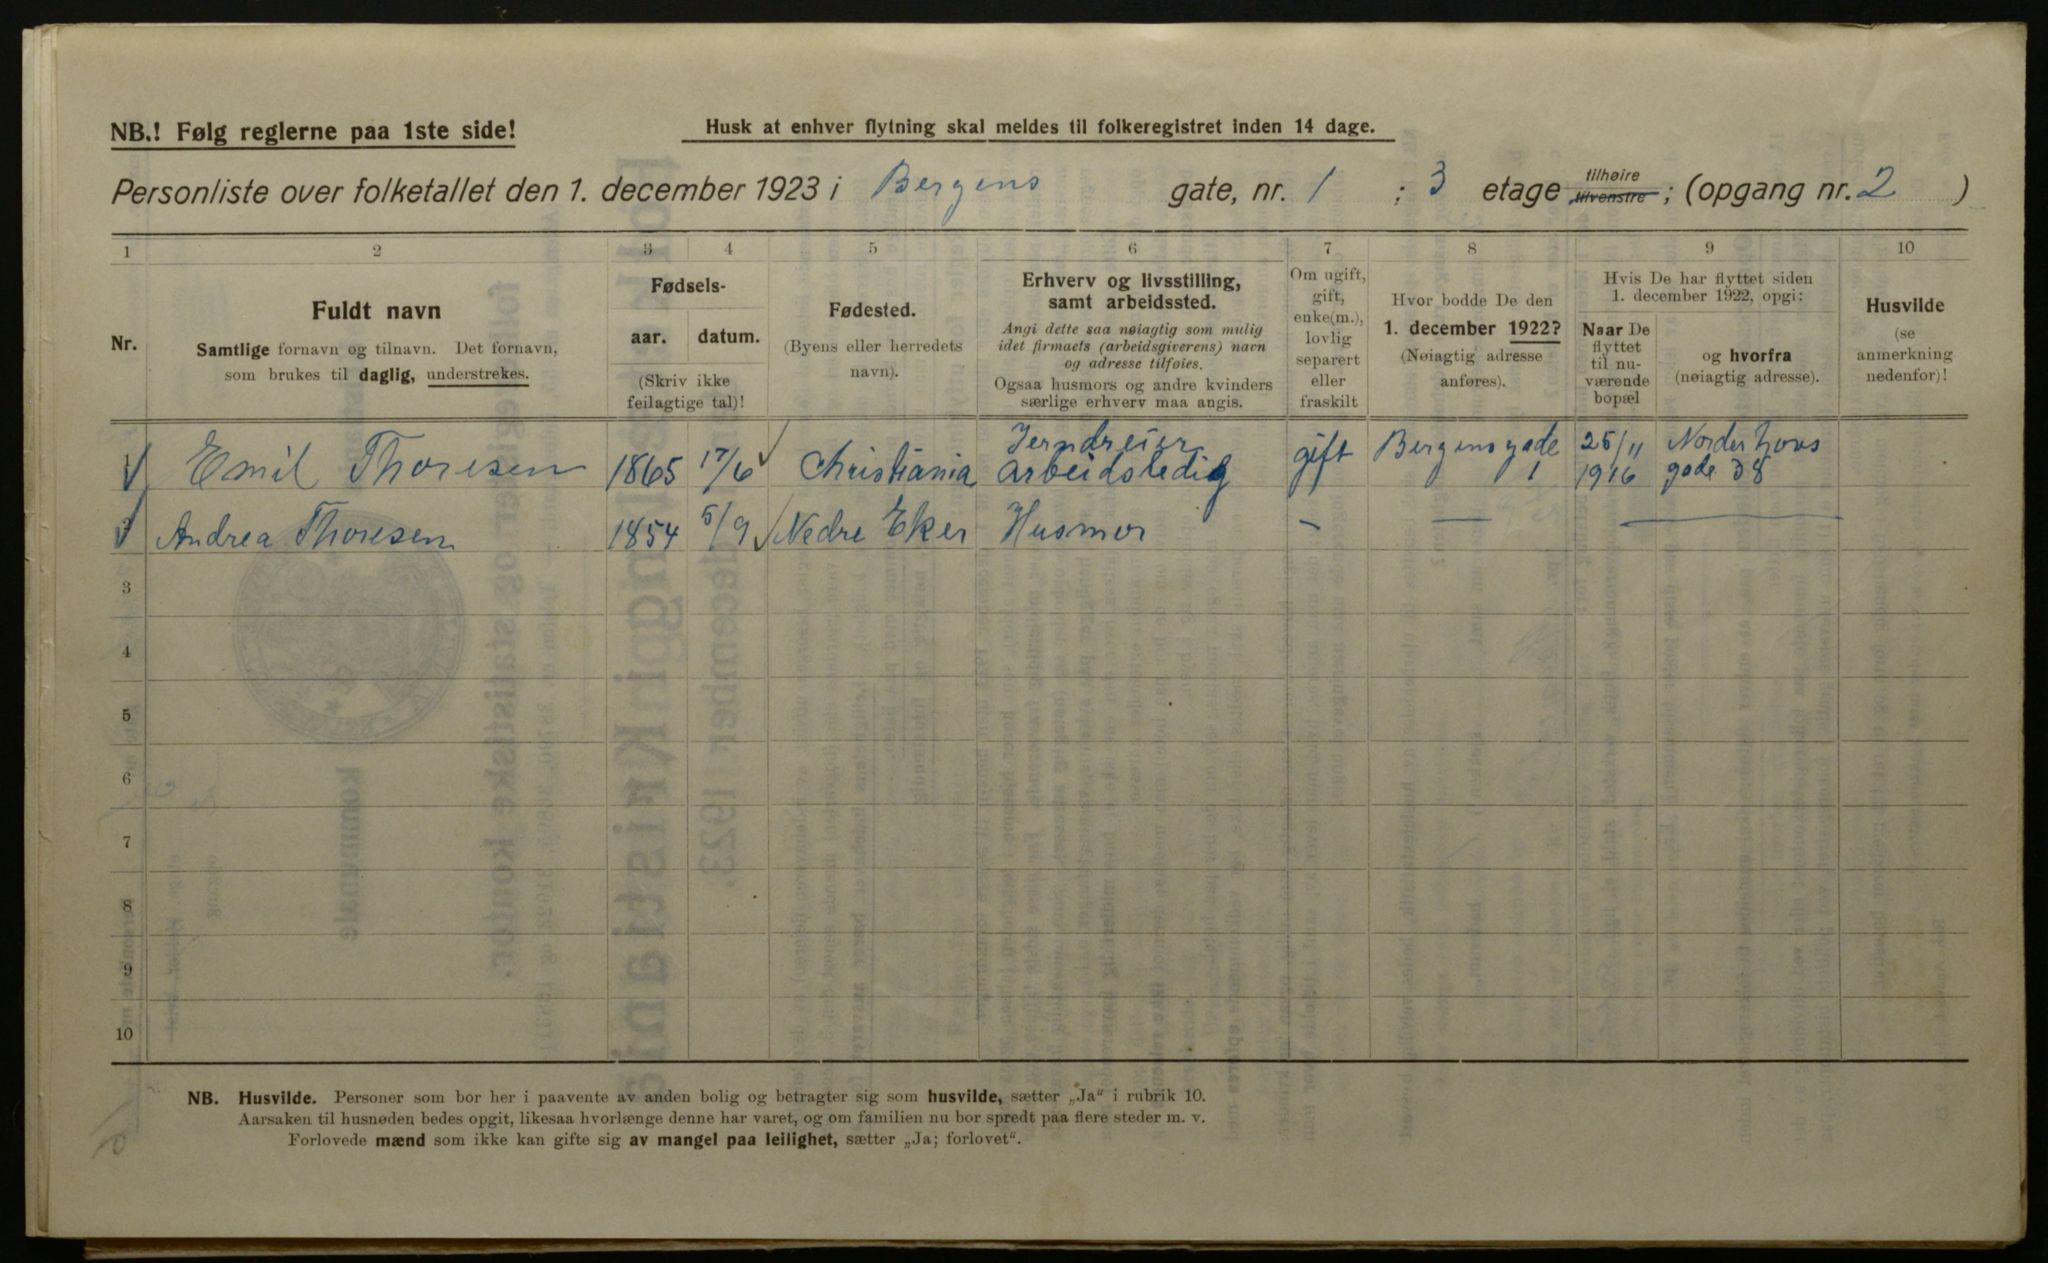 NB.! Følg reglerne paa 1ste side!
Husk at enhver flytning skal meldes til folkeregistret inden 14 dage.
Personliste over folketallet den 1. december 1923 i Bergens gate, nr. 1 ; 3 etage tilhøire tilvenstre ; (opgang nr. 2 )
1 2 3 4 5 6 7 8 9 10
Nr.
Fuldt navn
Samtlige fornavn og tilnavn. Det fornavn,
som brukes til daglig, understrekes.
Fødsels-
aar. datum.
(Skriv ikke
feilagtige tal)!
Fødested.
(Byens eller herredets
navn).
Erhverv og livsstilling,
samt arbeidssted.
Angi dette saa nøiagtig som mulig
idet firmaets (arbeidsgiverens) navn
og adresse tilføies.
Ogsaa husmors og andre kvinders
særlige erhverv maa angis.
Om ugift,
gift,
enke(m.),
lovlig
separert
eller
fraskilt
Hvor bodde De den
1. december 1922?
(Nøiagtig adresse
anføres).
Hvis De har flyttet siden
1. december 1922, opgi:
Naar De
flyttet
til nu-
værende
bopæl
og hvorfra
(nøiagtig adresse).
Husvilde
(se
anmerkning
nedenfor)!
1 Emil Thoresen 1865 17/6 Christiania Jerndreier arbeidsledig gift Bergensgade 1 25/11 1916 Norderhovs gade 38
2 Andrea Thoresen 1854 5/9 Nedre Eker Husmor — — —
3
4
5
6
7
8
9
10
NB. Husvilde. Personer som bor her i paavente av anden bolig og betragter sig som husvilde, sætter „Ja“ i rubrik 10.
Aarsaken til husnøden bedes opgit, likesaa hvorlænge denne har varet, og om familien nu bor spredt paa flere steder m. v.
Forlovede mænd som ikke kan gifte sig av mangel paa leilighet, sætter „Ja; forlovet“.